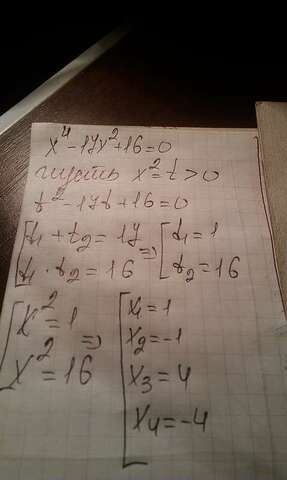 x⁴-17x²+16=0
пусть x²=t>0
t²-17t+16=0
[t₁+t₂=17 => [t₁=1
[t₁·t₂=16 [t₂=16
[x²=1 => [x₁=1
[x²=16 x₂=-1
x₃=4
x₄=-4